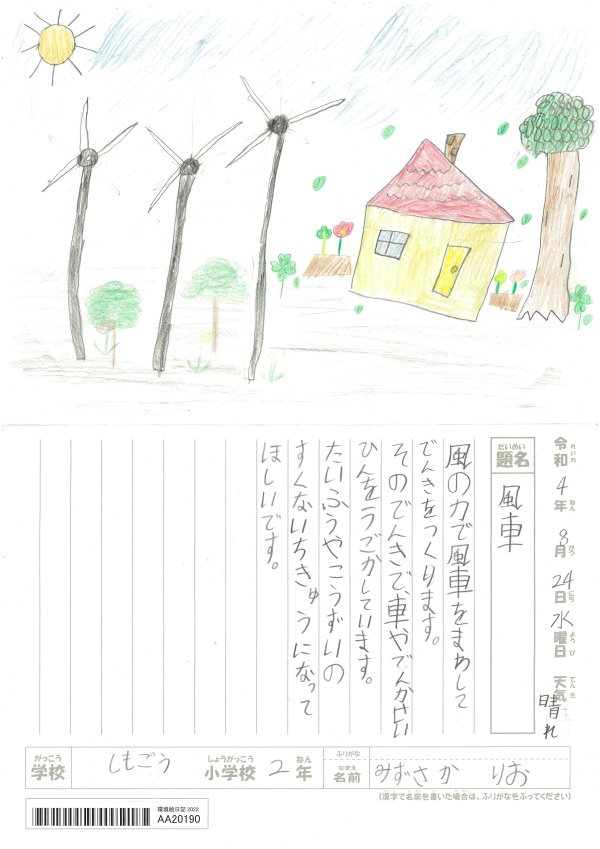 令和4年8月24日水曜日 天気 晴れ
れいわ ねん がつ にち ようび てんき
だいめい
題名 風車
風の力で風車をまわして
でんきをつくります。
そのでんきで、車やでんかせい
ひんをうごかしています。
たいふうやこうずいの
すくないちきゅうになって
ほしいです。
がっこう しょうがっこう ねん ふりがな
学校 しもごう 小学校 2年 なまえ 名前 みずさか りお
(漢字で名前を書いた場合は、ふりがなをふってください)
環境絵日記 2022
AA20190